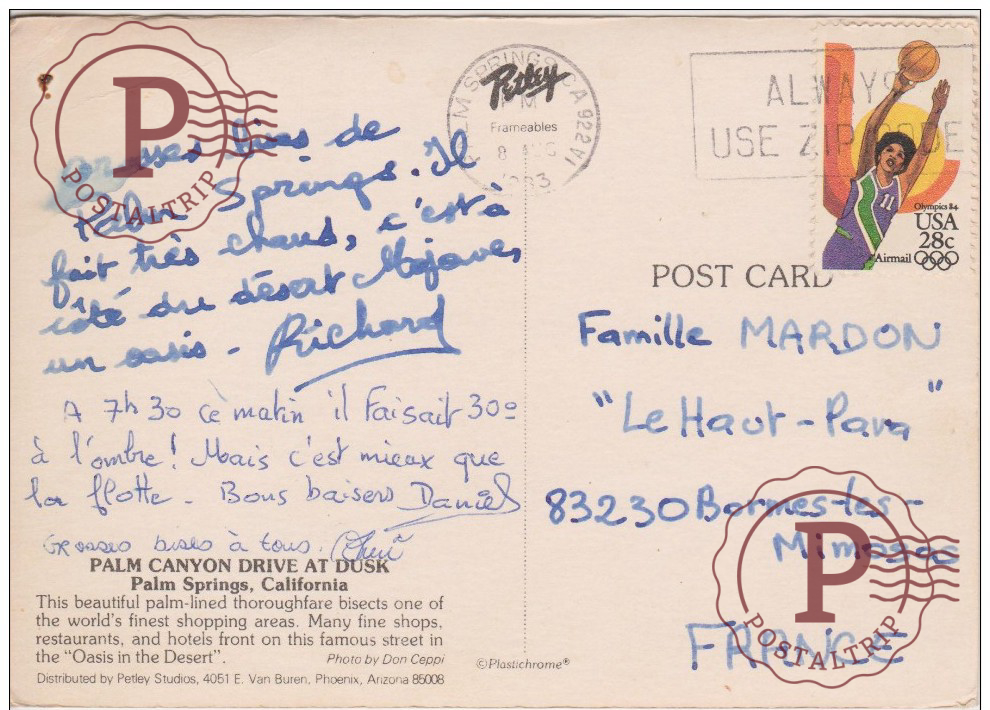 Grosses bises de
Palm Springs. Il
fait très chaud, c'est à
côté du désert Mojave,
un oasis - Richard
A 7h30 ce matin il faisait 30°
à l'ombre! Mais c'est mieux que
la flotte - Bons baisers Daniel
Grosses bises à tous.
PALM CANYON DRIVE AT DUSK
Palm Springs, California
This beautiful palm-lined thoroughfare bisects one of
the world's finest shopping areas. Many fine shops,
restaurants, and hotels front on this famous street in
the "Oasis in the Desert".
Photo by Don Ceppi
Distributed by Petley Studios, 4051 E. Van Buren, Phoenix, Arizona 85008
©Plastichrome®
Petley
Frameables
PALM SPRINGS CA 922
PM
8 AUG
1983
ALWAYS
USE ZIP CODE
11
Olympics 84
USA
28c
Airmail
POST CARD
Famille MARDON
"Le Haut-Pava"
83230 Bormes-les-
Mimosas
FRANCE
P
POSTALTRIP
P
POSTALTRIP